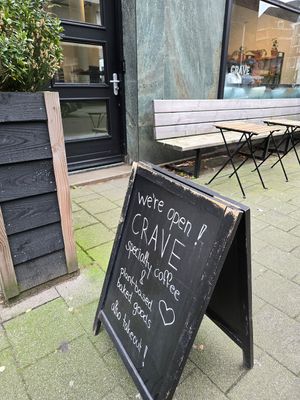 we're open!
CRAVE
specialty coffee
&
plant-based
baked goods
also takeout!
CRAVE